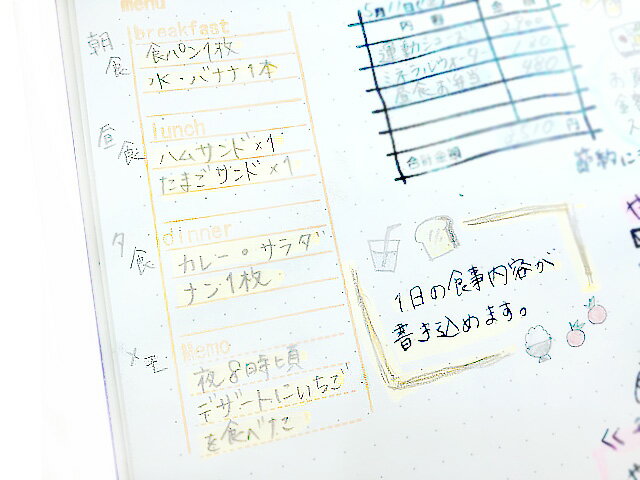 menu
breakfast
朝食
食パン1枚
水・バナナ1本
lunch
昼食
ハムサンド×1
たまごサンド×1
dinner
夕食
カレー・サラダ
ナン1枚
Memo
メモ
夜8時頃
デザートにいちご
を食べた
5月11日
内容 金額
運動シューズ 2800
ミネラルウォーター
昼食お弁当 480
合計金額 円
節約に
1日の食事内容が
書き込めます。